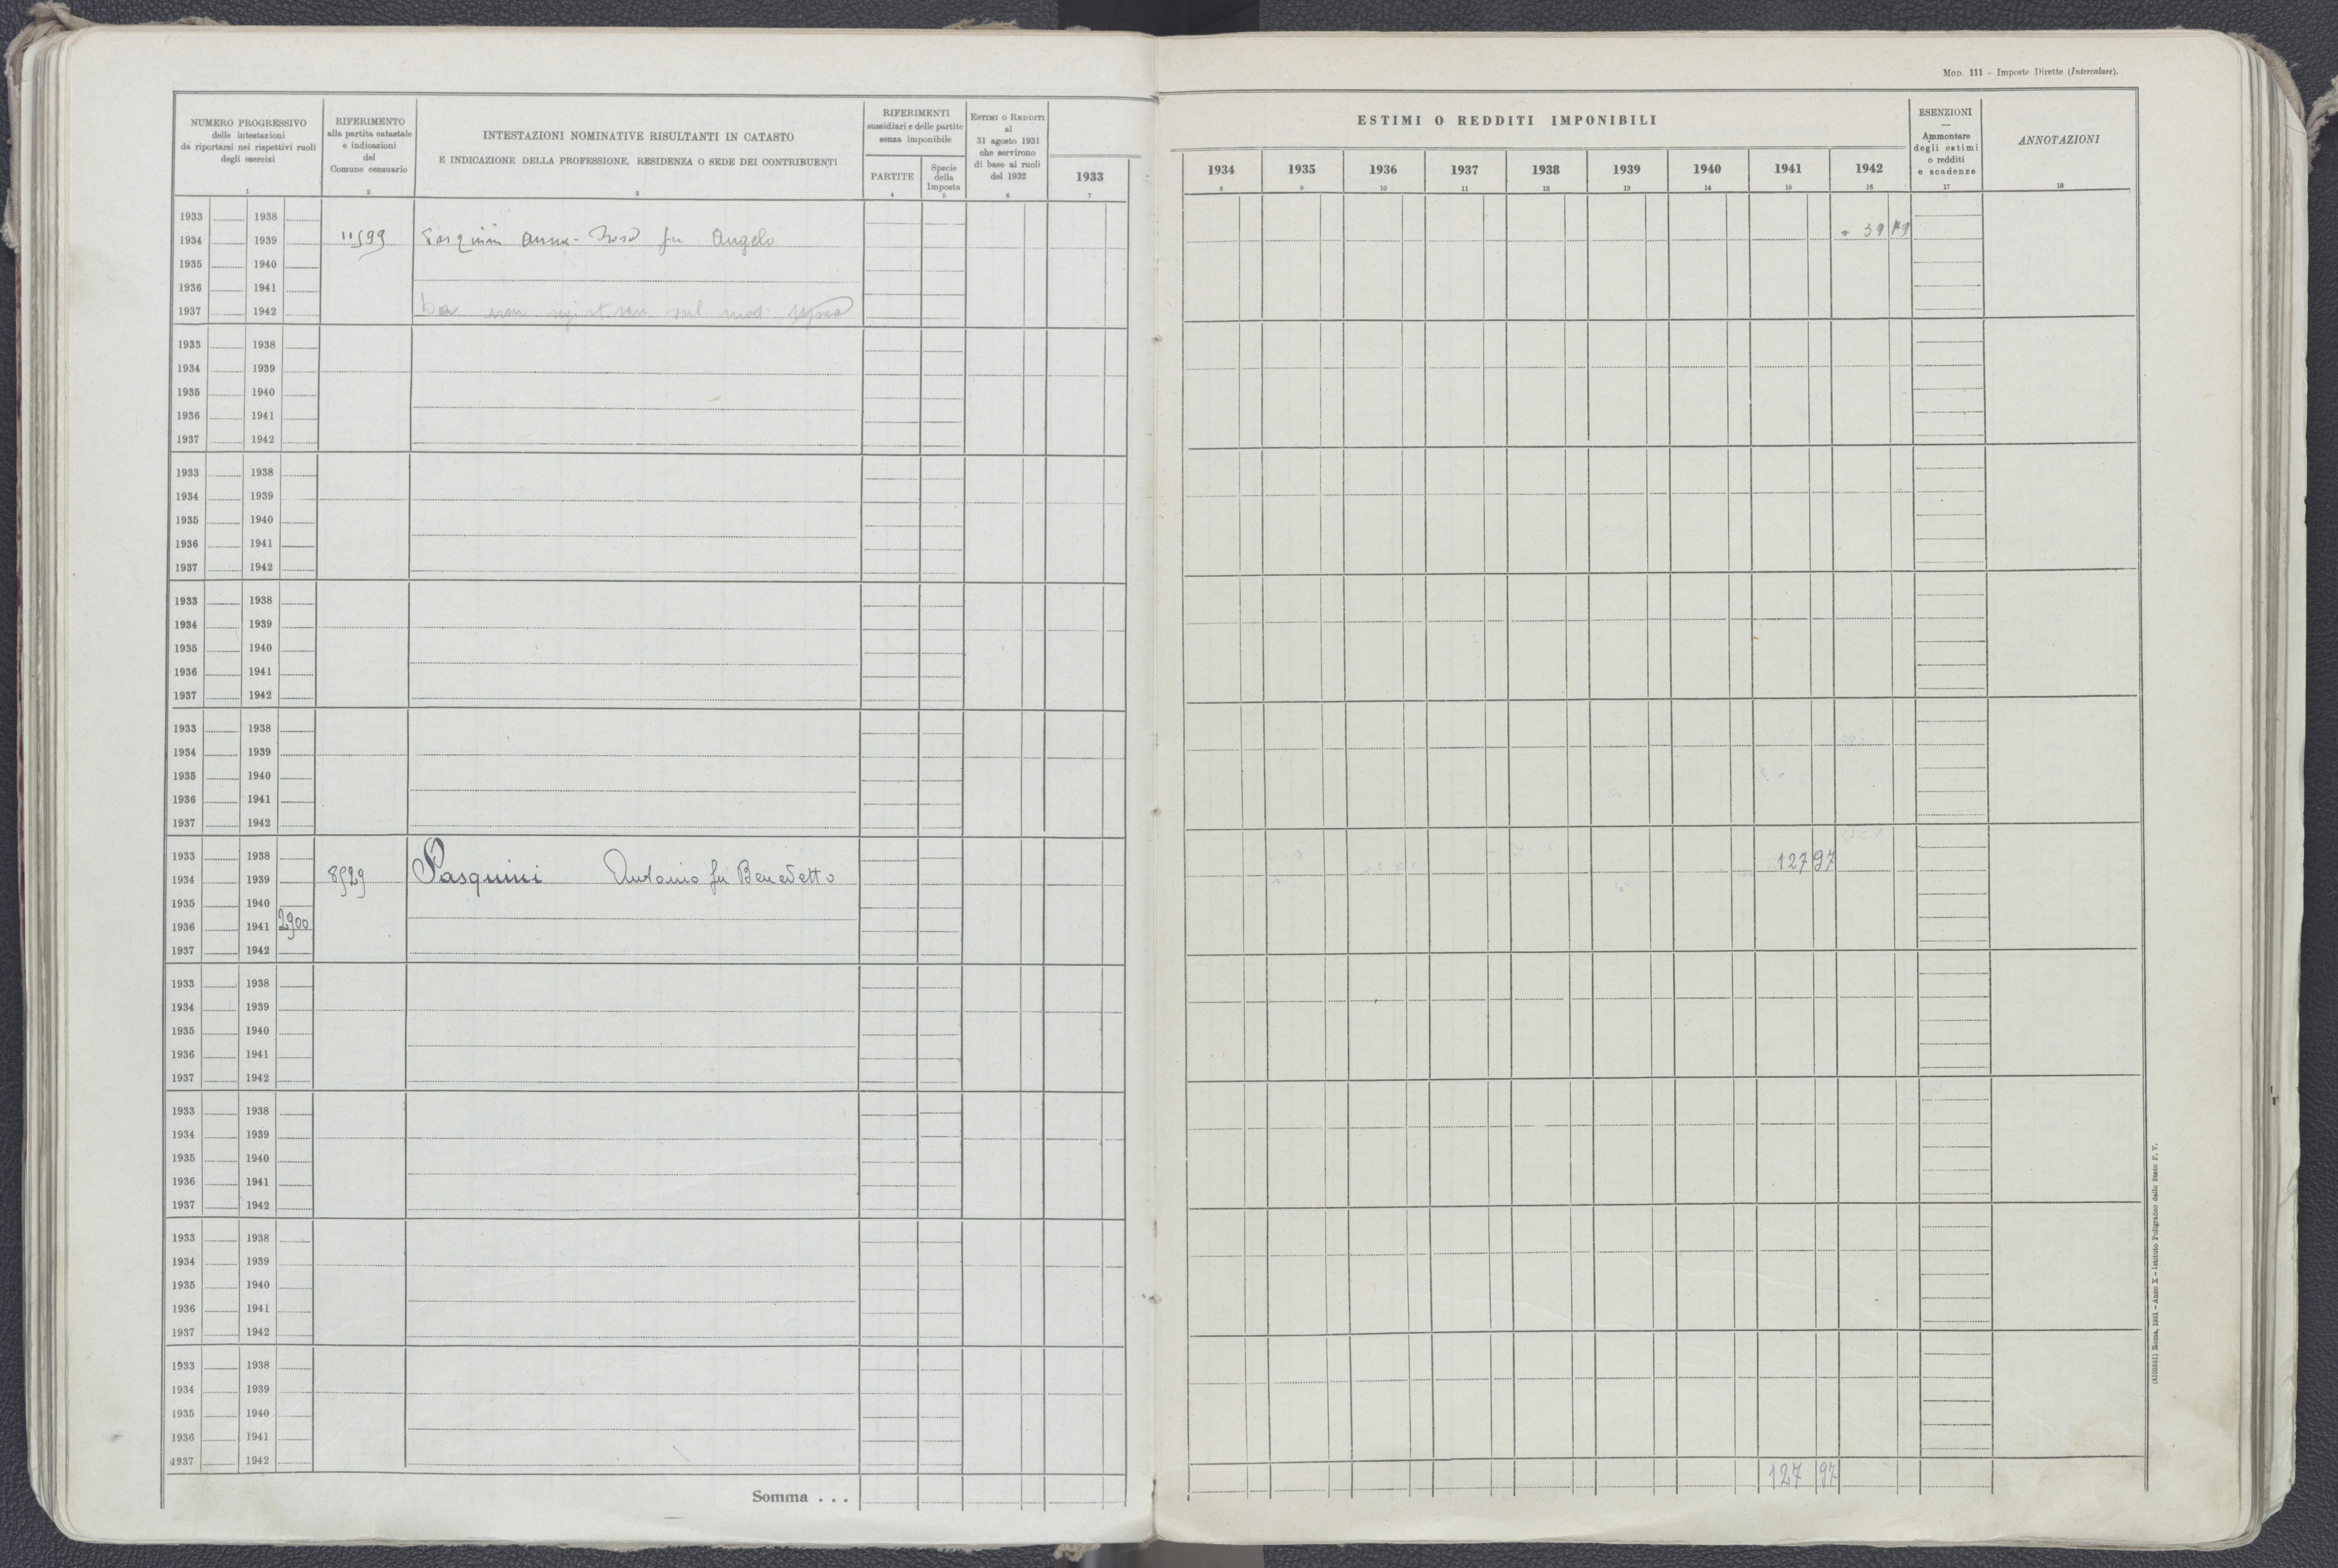 Mod. 111 – Imposte Dirette (Intercalare).
NUMERO PROGRESSIVO
delle intestazioni
da riportarsi nei rispettivi ruoli
degli esercizi
1
RIFERIMENTO
alla partita catastale
e indicazioni
del
Comune censuario
2
INTESTAZIONI NOMINATIVE RISULTANTI IN CATASTO
E INDICAZIONE DELLA PROFESSIONE, RESIDENZA O SEDE DEI CONTRIBUENTI
3
RIFERIMENTI
sussidiari e delle partite
senza imponibile
PARTITE
4
Specie
della
Imposta
5
ESTIMI O REDDITI
al
31 agosto 1931
che servirono
di base ai ruoli
del 1932
6
1933
7
ESTIMI O REDDITI IMPONIBILI
1934 1935 1936 1937 1938 1939 1940 1941 1942
8 9 10 11 12 13 14 15 16
ESENZIONI
—
Ammontare
degli estimi
o redditi
e scadenze
17
ANNOTAZIONI
18
1933 1938
1934 1939 11599 Pasquini Anna-Rosa fu Angelo 39
1935 1940
1936 1941
1937 1942 Da non registrare sul mod.
1933 1938
1934 1939
1935 1940
1936 1941
1937 1942
1933 1938
1934 1939
1935 1940
1936 1941
1937 1942
1933 1938
1934 1939
1935 1940
1936 1941
1937 1942
1933 1938
1934 1939
1935 1940
1936 1941
1937 1942
1933 1938
1934 1939 8529 Pasquini Antonio fu Benedetto 127 97
1935 1940
1936 1941 2900
1937 1942
1933 1938
1934 1939
1935 1940
1936 1941
1937 1942
1933 1938
1934 1939
1935 1940
1936 1941
1937 1942
1933 1938
1934 1939
1935 1940
1936 1941
1937 1942
1933 1938
1934 1939
1935 1940
1936 1941
1937 1942
Somma . . . 127 97
Roma, 1931 – Anno X – Istituto Poligrafico dello Stato P. V.